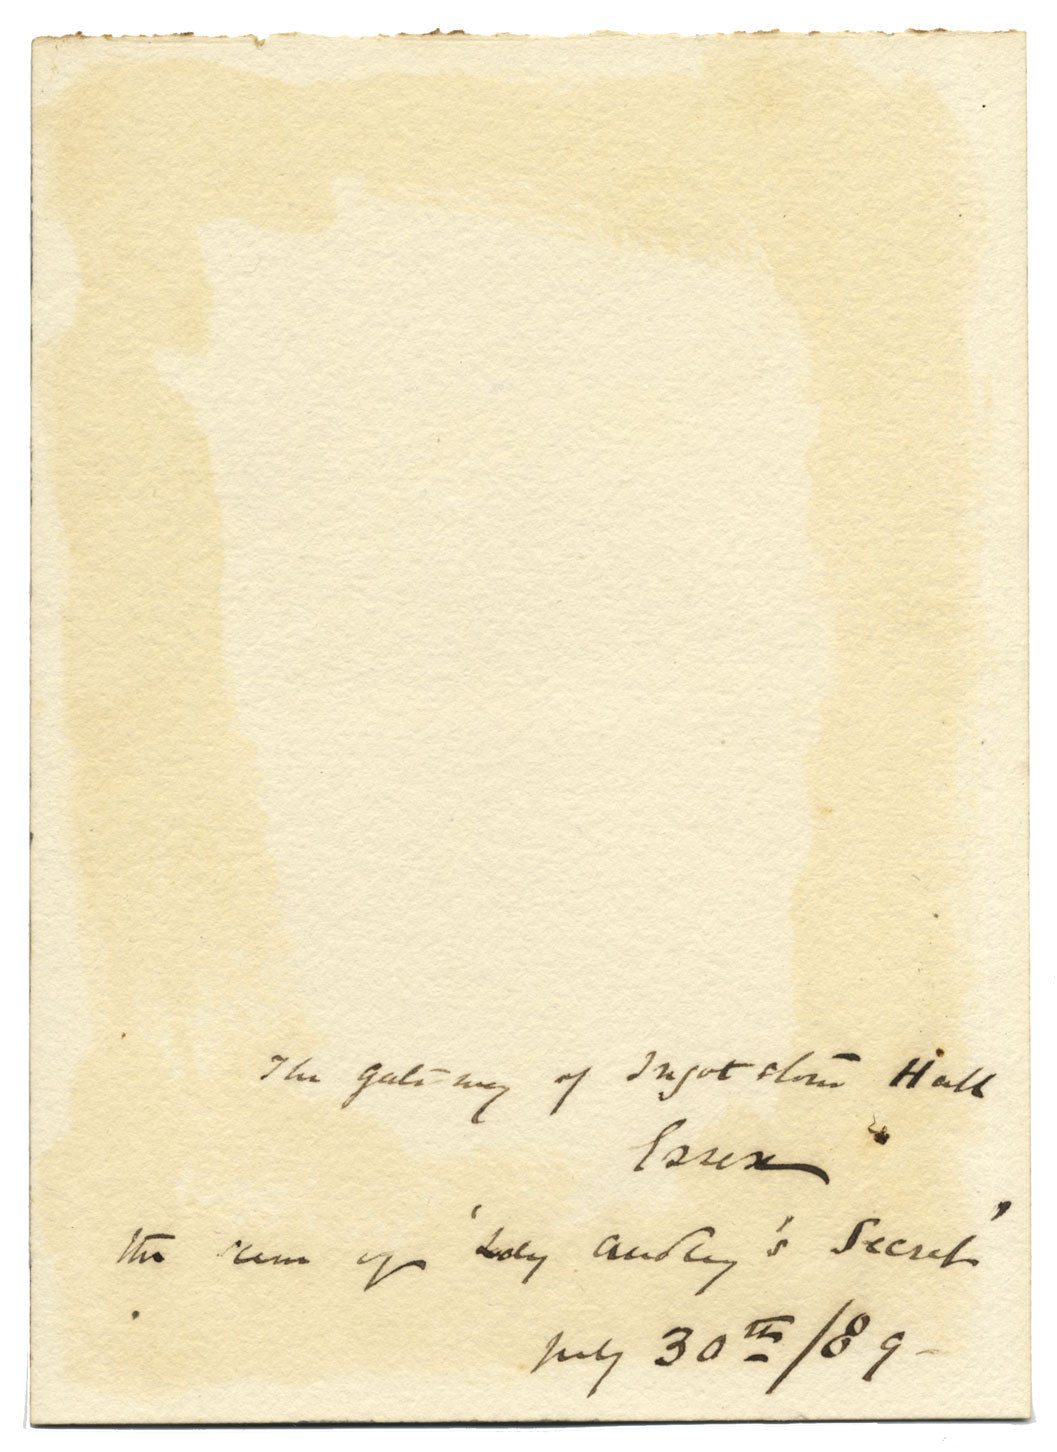 The gateway of Ingotstone Hall
Essex
the scene of 'Lady Audley's Secret'
July 30th/89-